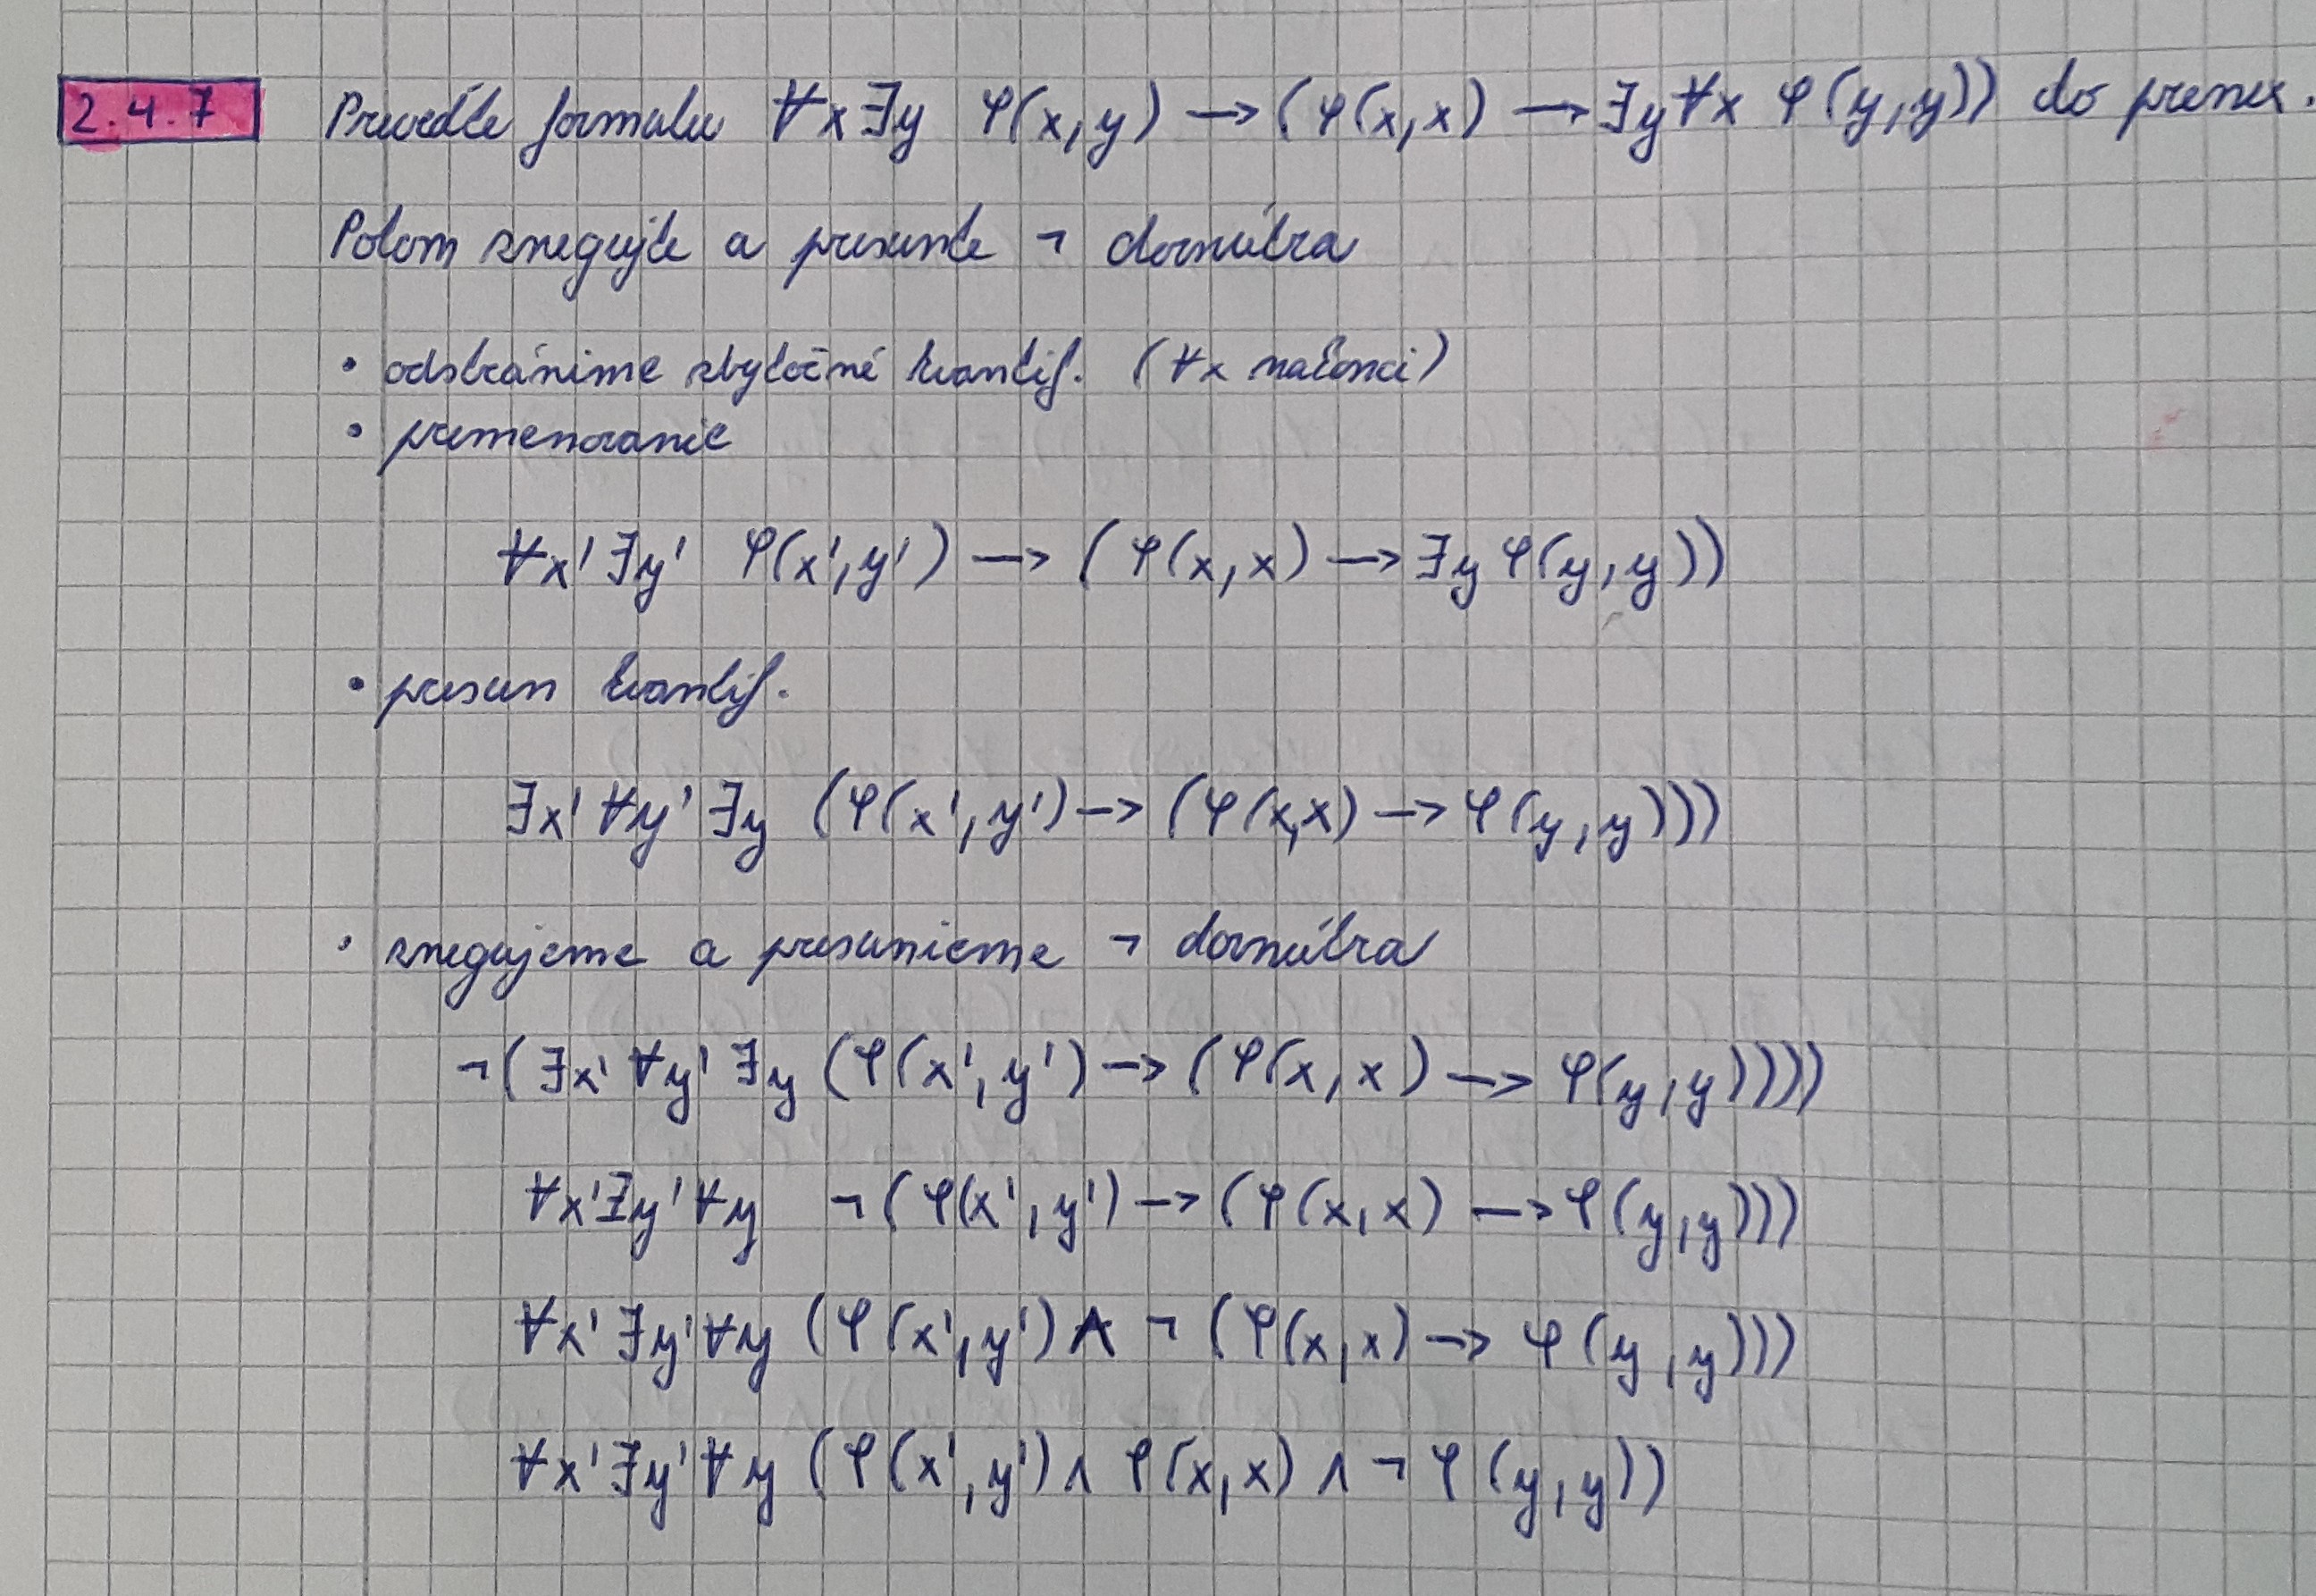 2.4.7 Preveďte formulu ∀x∃y φ(x,y) → (φ(x,x) → ∃y∀x φ(y,y)) do prenex.
Potom znegujte a presunte ¬ dovnútra
• odstránime zbytočné kvantif. (∀x nakonci)
• premenovanie
∀x'∃y' φ(x',y') → (φ(x,x) → ∃y φ(y,y))
• presun kvantif.
∃x'∀y'∃y (φ(x',y') → (φ(x,x) → φ(y,y)))
• znegujeme a presunieme ¬ dovnútra
¬(∃x'∀y'∃y (φ(x',y') → (φ(x,x) → φ(y,y))))
∀x'∃y'∀y ¬(φ(x',y') → (φ(x,x) → φ(y,y)))
∀x'∃y'∀y (φ(x',y') ∧ ¬(φ(x,x) → φ(y,y)))
∀x'∃y'∀y (φ(x',y') ∧ φ(x,x) ∧ ¬φ(y,y))